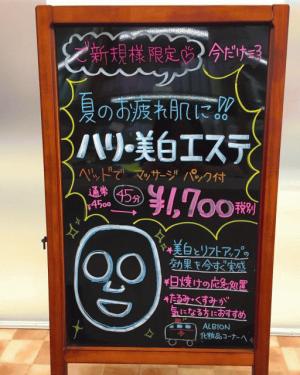 ご新規様限定♡ 今だけ=3
夏のお疲れ肌に!!
ハリ・美白エステ
ベッドで マッサージ パック付
通常
¥4500 → 45分 ¥1,700 税別
*美白とリフトアップの
効果を今すぐ実感
*日焼けの応急処置
*たるみ・くすみが
気になる方におすすめ
ALBION
化粧品コーナーへ